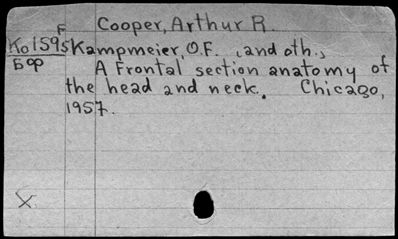 F Cooper, Arthur R.
Ko1595 Kampmeier, O.F. , and oth.,
Бф A Frontal section anatomy of
the head and neck. Chicago,
1957.
X